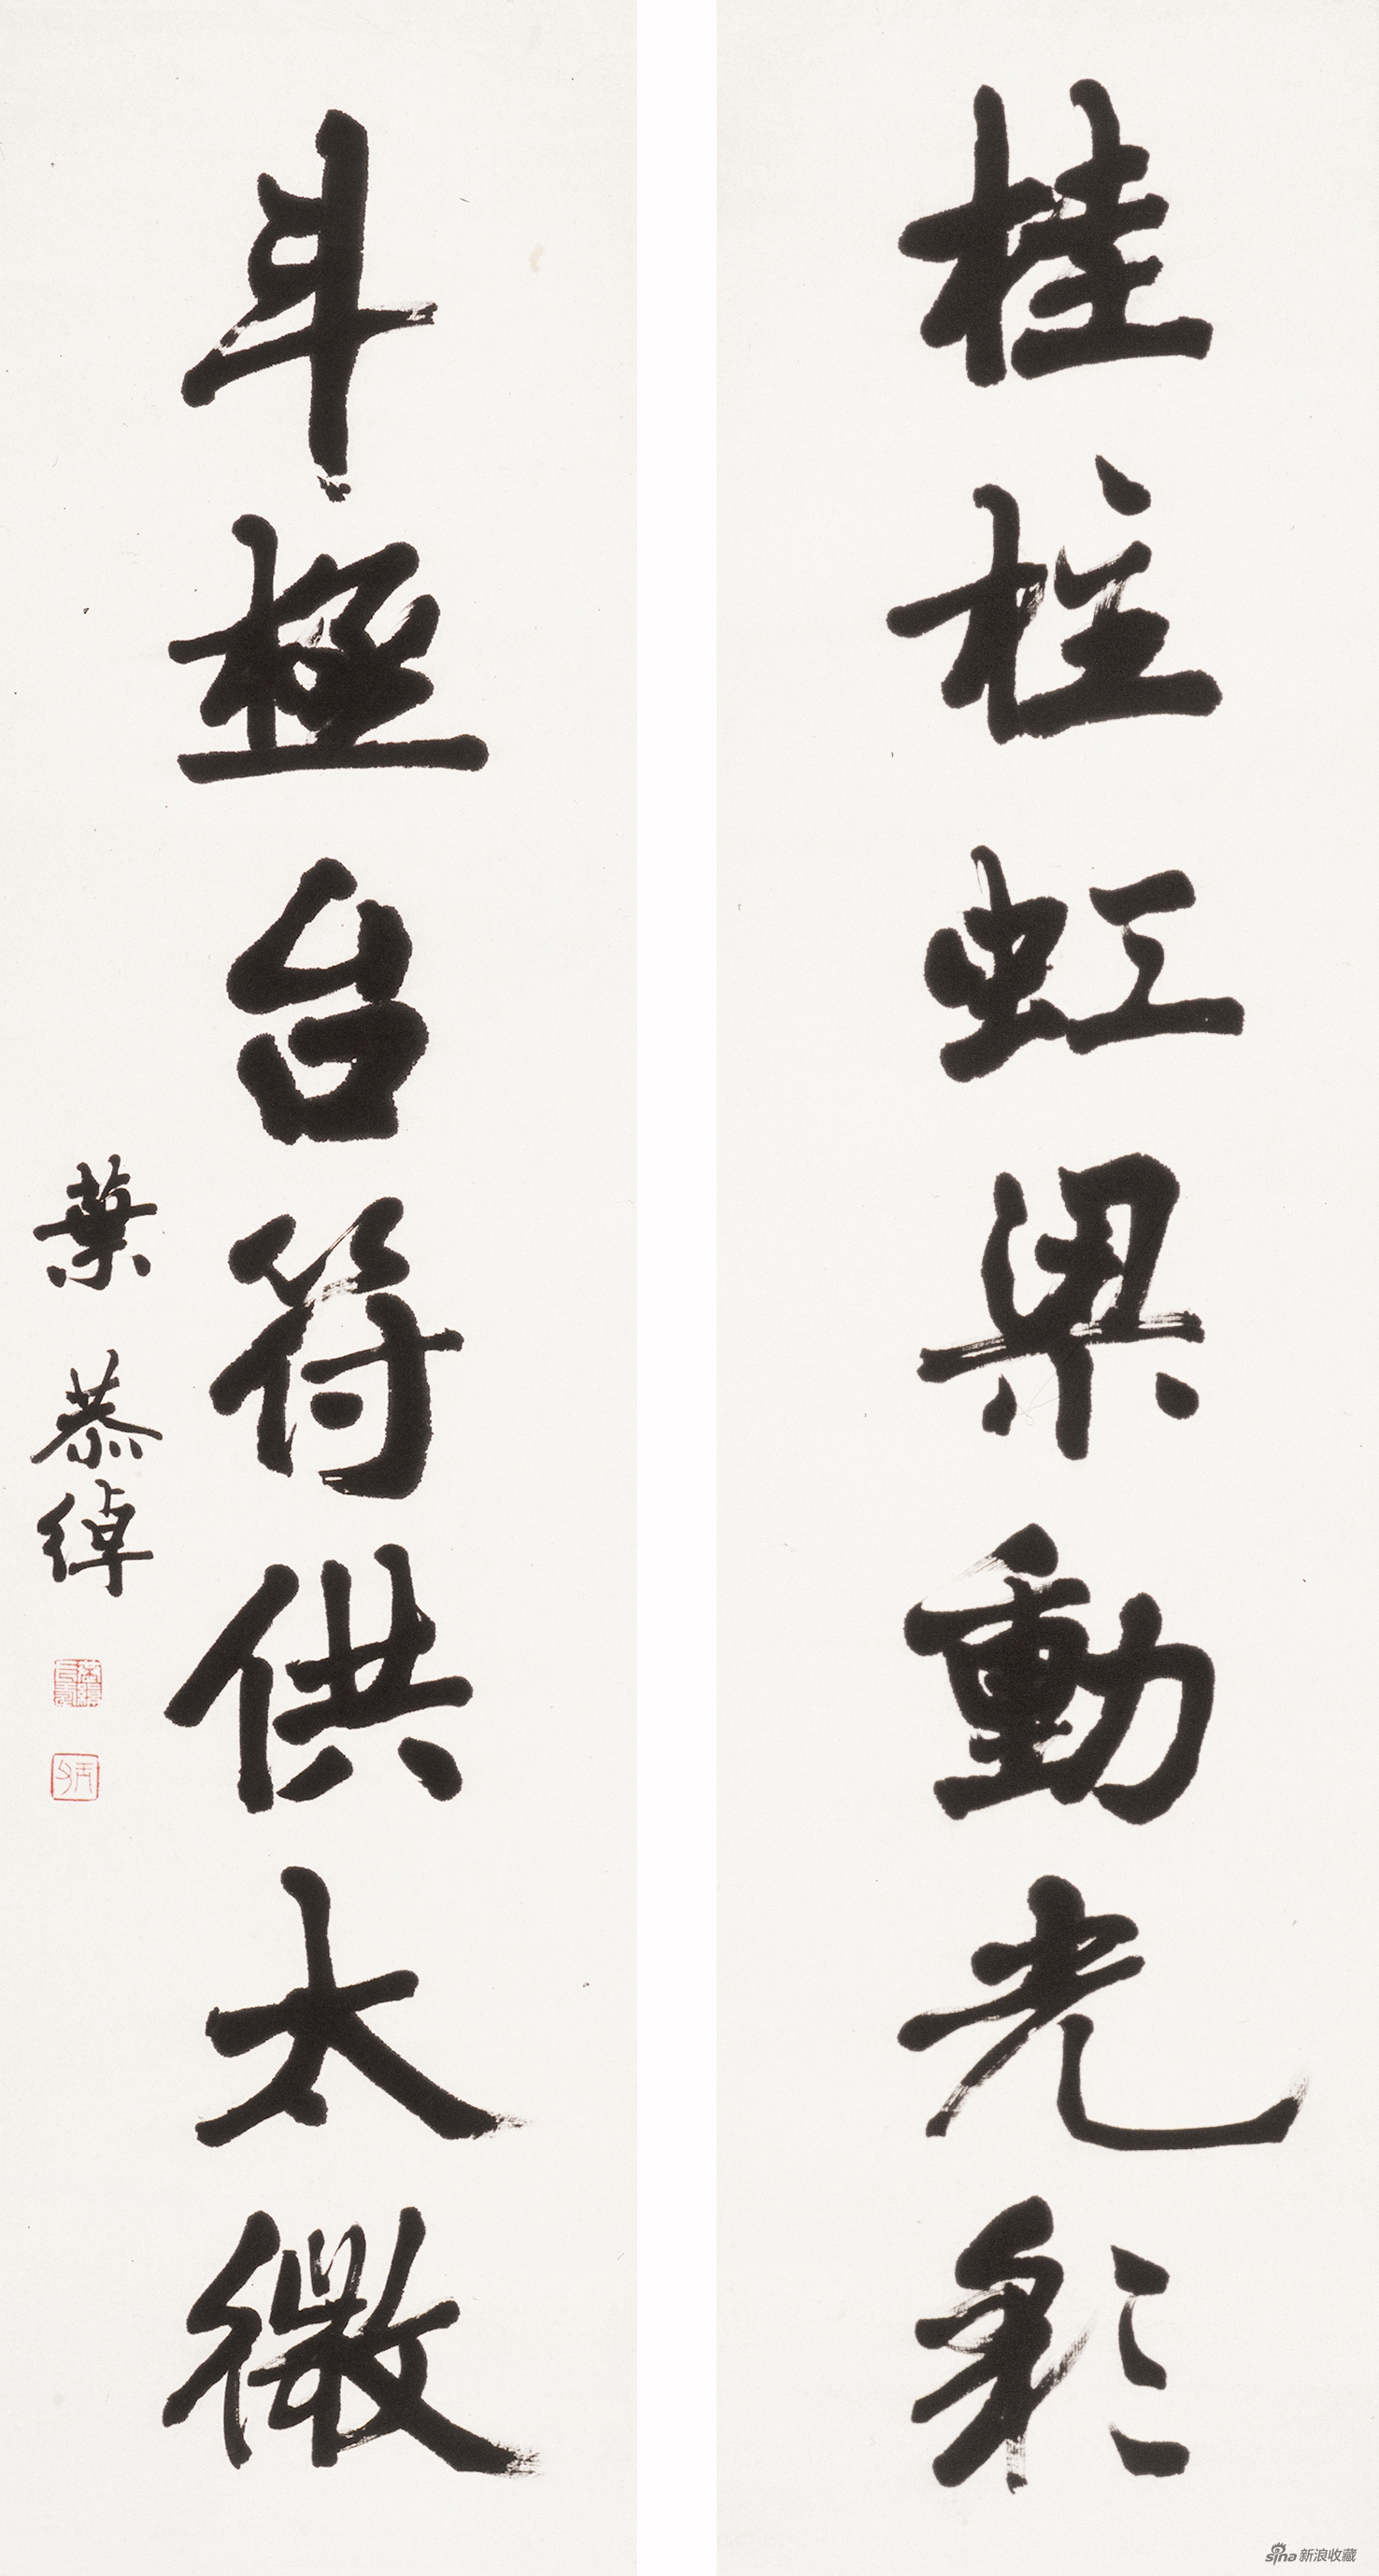 桂柱虹梁動光彩
斗極台符供太微
葉恭綽
sina新浪收藏